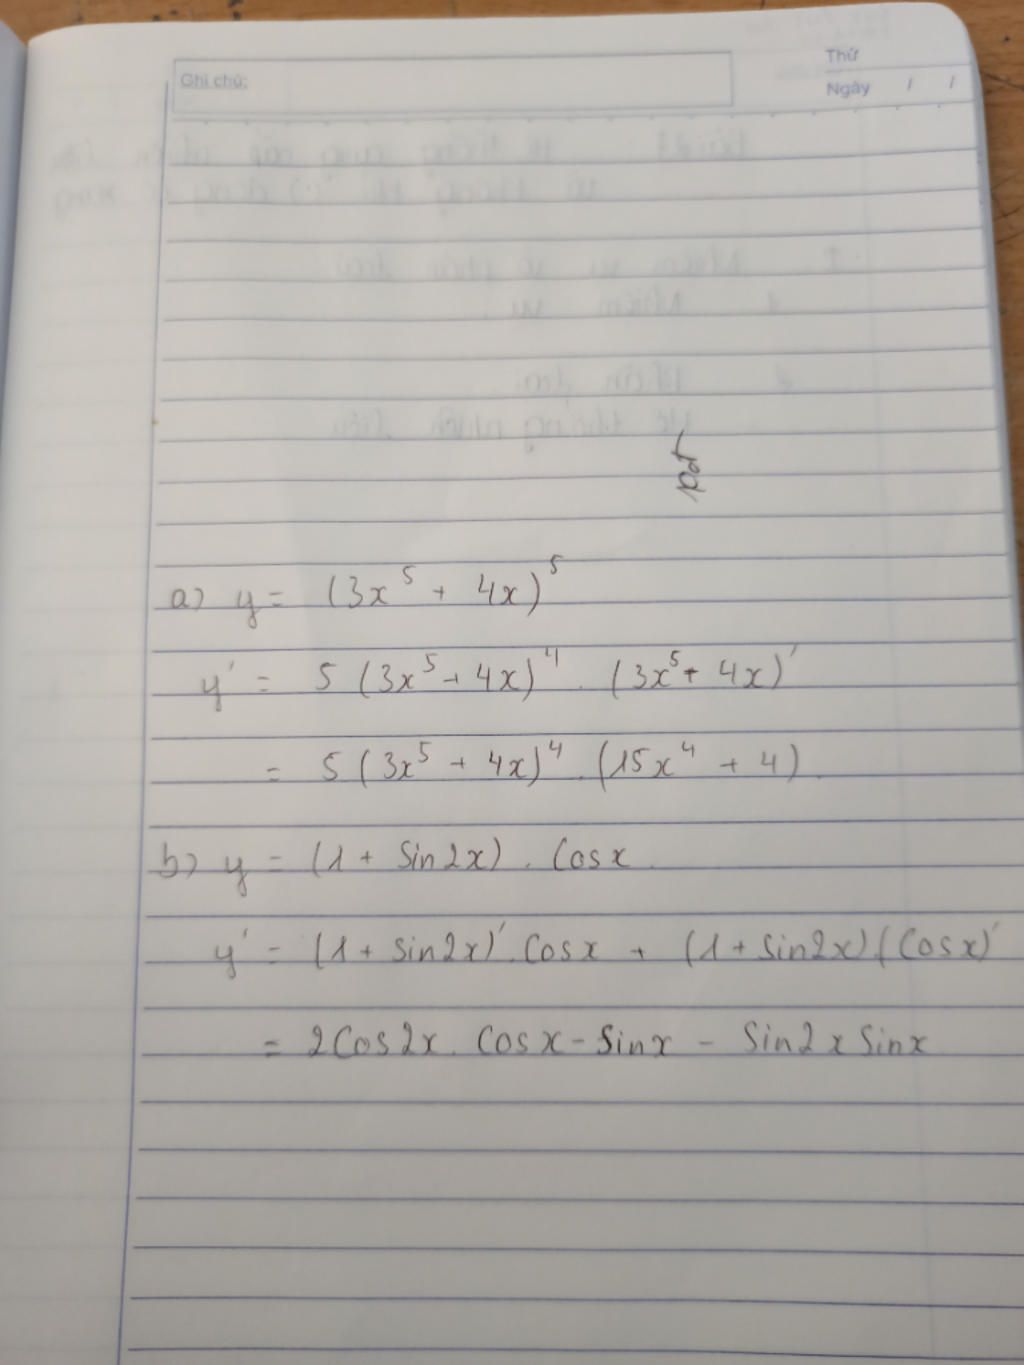 Ghi chú:
Thứ
Ngày / /
a) y = (3x⁵ + 4x)⁵
y' = 5 (3x⁵ + 4x)⁴ . (3x⁵ + 4x)'
= 5 (3x⁵ + 4x)⁴ . (15x⁴ + 4).
b) y = (1 + Sin2x) . Cosx.
y' = (1 + Sin2x)' . Cosx + (1 + Sin2x) (Cosx)'
= 2Cos2x . Cosx - Sinx - Sin2x Sinx